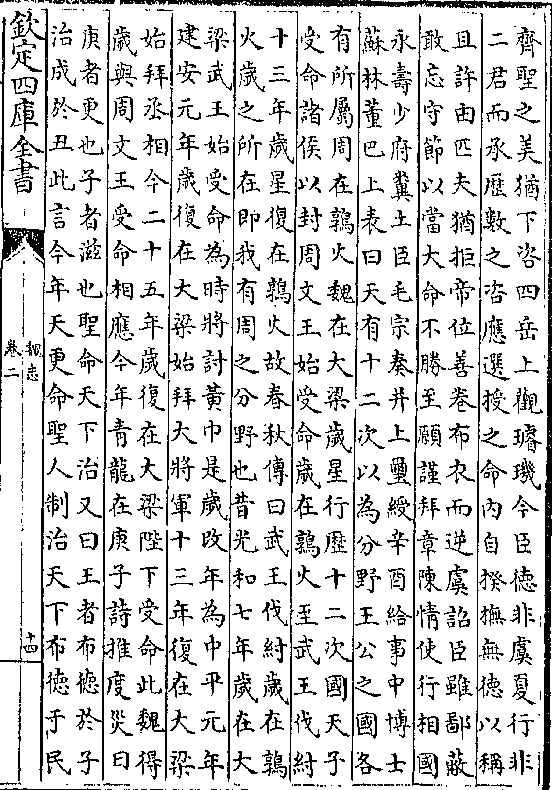 齊聖之美猶下咨四岳上觀璿璣今臣徳非虞夏行非
二君而承歴數之咨應選授之命内自揆撫無徳以稱
且許由匹夫猶拒帝位善卷布衣而逆虞詔臣雖鄙蔽
敢忘守節以當大命不勝至願謹拜章陳情使行相國
永壽少府糞土臣毛宗奏并上璽綬辛酉給事中博士
蘇林董巴上表曰天有十二次以為分野王公之國各
有所屬周在鶉火魏在大梁歲星行歴十二次國天子
受命諸侯以封周文王始受命歲在鶉火至武王伐紂
十三年歲星復在鶉火故春秋傳曰武王伐紂歲在鶉
火歲之所在即我有周之分野也昔光和七年歲在大
梁武王始受命為時將討黄巾是歲改年為中平元年
建安元年歲復在大梁始拜大將軍十三年復在大梁
始拜丞相今二十五年歲復在大梁陛下受命此魏得
歲與周文王受命相應今年青龍在庚子詩推度災曰
庚者更也子者滋也聖命天下治又曰王者布徳於子
治成於丑此言今年天更命聖人制治天下布徳于民
欽定四庫全書
魏志
卷二
十四